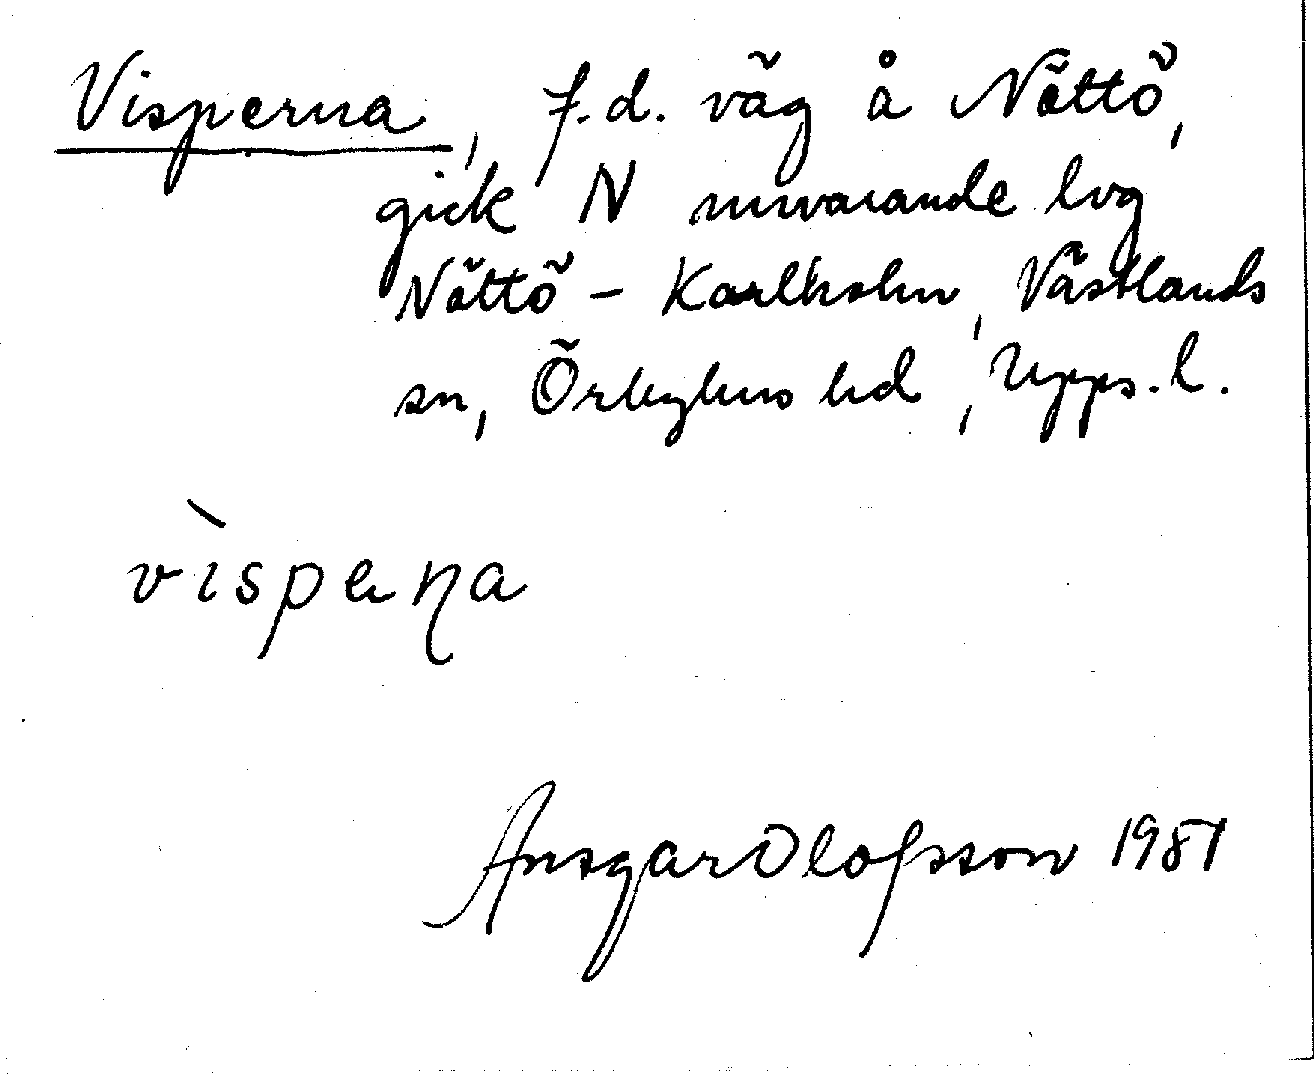 Visperna, f.d. väg å Nöttö,
gick N nuvarande lvg
Nöttö - Karlholm, Västlands
sn, Örbyhus hd, Upps. l.
vìspeṇa
Ansgar Olofsson 1981